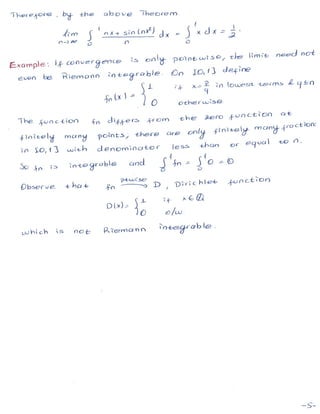 Therefore, by the above Theorem
lim n→∞ ∫₀¹ (nx + sin(nx²))/n dx = ∫₀¹ x dx = 1/2.
Example: If convergence is only pointwise, the limit need not
even be Riemann integrable. On [0,1] define
fn(x) = { 1 if x = p/q in lowest terms & q≤n
0 otherwise
The function fn differs from the zero function at
finitely many points, there are only finitely many fractions
in [0,1] with denominator less than or equal to n.
So fn is integrable and ∫₀¹ fn = ∫₀¹ 0 = 0
Observe that fn →(ptwise) D, Dirichlet function
D(x) = { 1 if x∈Q
0 o/w
which is not Riemann integrable.
-5-